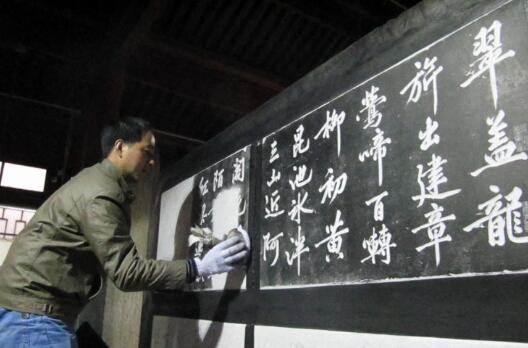 翠盖龍
旂出建章
鶯啼百轉
柳初黄
昆池冰泮
三山近阿
閣
陌